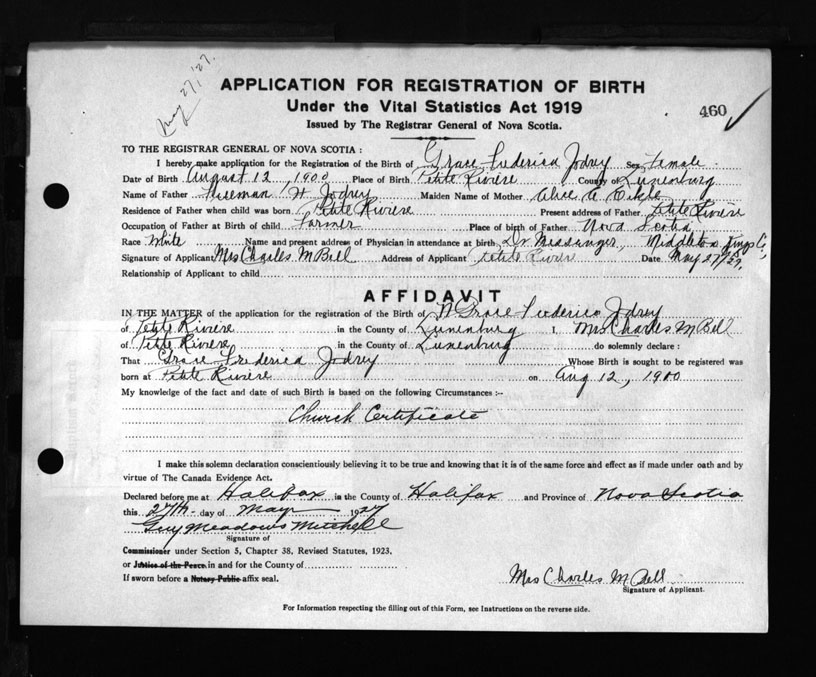 May 27/27.
APPLICATION FOR REGISTRATION OF BIRTH
Under the Vital Statistics Act 1919
460
Issued by The Registrar General of Nova Scotia.
TO THE REGISTRAR GENERAL OF NOVA SCOTIA :
I hereby make application for the Registration of the Birth of Grace Frederica Jodrey Sex Female
Date of Birth August 12, 1900 Place of Birth Petite Riviere County of Lunenburg
Name of Father Freeman H Jodrey Maiden Name of Mother Alice A.
Residence of Father when child was born Petite Riviere Present address of Father Petite Riviere
Occupation of Father at Birth of child Farmer Place of birth of Father Nova Scotia
Race White Name and present address of Physician in attendance at birth Dr Messenger, Middleton Kings Co,
Signature of Applicant Mrs Charles M Bell Address of Applicant Petite Riviere Date May 27/27,
Relationship of Applicant to child
AFFIDAVIT
IN THE MATTER of the application for the registration of the Birth of Grace Frederica Jodrey
of Petite Riviere in the County of Lunenburg I, Mrs Charles M Bell
of Petite Riviere in the County of Lunenburg do solemnly declare :
That Grace Frederica Jodrey Whose Birth is sought to be registered was
born at Petite Riviere on Aug 12, 1900
My knowledge of the fact and date of such Birth is based on the following Circumstances :--
Church Certificate
I make this solemn declaration conscientiously believing it to be true and knowing that it is of the same force and effect as if made under oath and by
virtue of The Canada Evidence Act.
Declared before me at Halifax in the County of Halifax and Province of Nova Scotia
this 27th day of May 1927
Guy Meadows Mitchell
Signature of
Commissioner under Section 5, Chapter 38, Revised Statutes, 1923.
or Justice of the Peace in and for the County of
If sworn before a Notary Public affix seal.
Mrs Charles M Bell
Signature of Applicant.
For Information respecting the filling out of this Form, see Instructions on the reverse side.